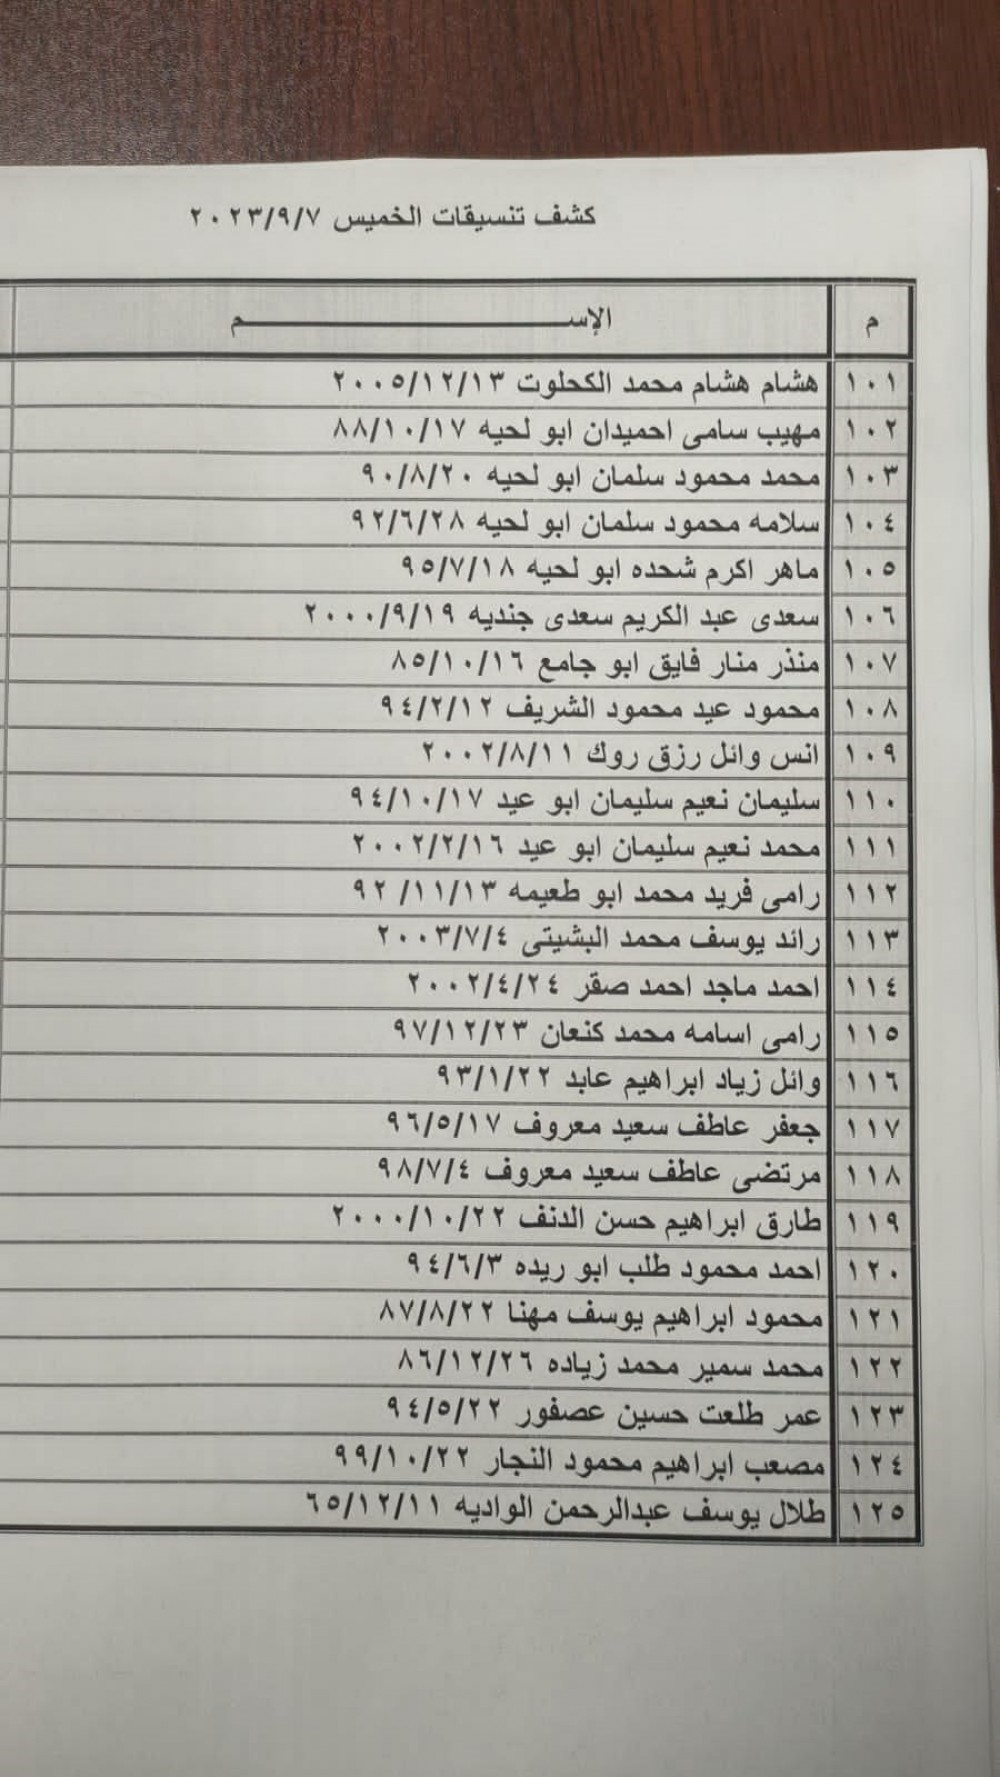 كشف تنسيقات الخميس ٢٠٢٣/٩/٧
م الإســـــــــم
١٠١ هشام هشام محمد الكحلوت ٢٠٠٥/١٢/١٣
١٠٢ مهيب سامى احميدان ابو لحيه ٨٨/١٠/١٧
١٠٣ محمد محمود سلمان ابو لحيه ٩٠/٨/٢٠
١٠٤ سلامه محمود سلمان ابو لحيه ٩٢/٦/٢٨
١٠٥ ماهر اكرم شحده ابو لحيه ٩٥/٧/١٨
١٠٦ سعدى عبد الكريم سعدى جنديه ٢٠٠٠/٩/١٩
١٠٧ منذر منار فايق ابو جامع ٨٥/١٠/١٦
١٠٨ محمود عيد محمود الشريف ٩٤/٢/١٢
١٠٩ انس وائل رزق روك ٢٠٠٢/٨/١١
١١٠ سليمان نعيم سليمان ابو عيد ٩٤/١٠/١٧
١١١ محمد نعيم سليمان ابو عيد ٢٠٠٢/٢/١٦
١١٢ رامى فريد محمد ابو طعيمه ٩٢/١١/١٣
١١٣ رائد يوسف محمد البشيتى ٢٠٠٣/٧/٤
١١٤ احمد ماجد احمد صقر ٢٠٠٢/٤/٢٤
١١٥ رامى اسامه محمد كنعان ٩٧/١٢/٢٣
١١٦ وائل زياد ابراهيم عابد ٩٣/١/٢٢
١١٧ جعفر عاطف سعيد معروف ٩٦/٥/١٧
١١٨ مرتضى عاطف سعيد معروف ٩٨/٧/٤
١١٩ طارق ابراهيم حسن الدنف ٢٠٠٠/١٠/٢٢
١٢٠ احمد محمود طلب ابو ريده ٩٤/٦/٣
١٢١ محمود ابراهيم يوسف مهنا ٨٧/٨/٢٢
١٢٢ محمد سمير محمد زياده ٨٦/١٢/٢٦
١٢٣ عمر طلعت حسين عصفور ٩٤/٥/٢٢
١٢٤ مصعب ابراهيم محمود النجار ٩٩/١٠/٢٢
١٢٥ طلال يوسف عبدالرحمن الواديه ٦٥/١٢/١١